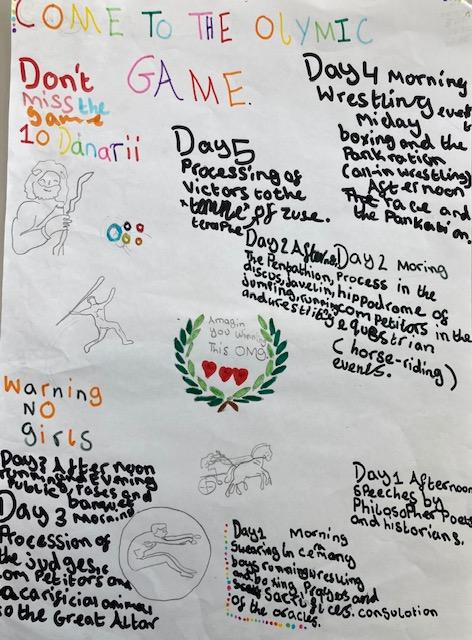 COME TO THE OLYMIC
GAME.
Don't
miss the
game
10 Danarii
Day 4 Morning
Wrestling event
Miday
boxing and the
Pankration
(all-in wrestling)
Afternoon
race and
the Pankation.
Day 5
Processing of
victors to the
of zuse.
temple
Day 2 Afternoon
The Pentathion,
discus, Javelin,
Jumping, running
and wrestling
Day 2 Moring
Process in the
hippodrome of
competitors in the
equestrian
(horse-riding)
events.
Amagin
you winning
This OMG
Warning
NO
girls
Day 2 Afternoon
running Evening
Public, roses and
banquet
Day 3 Morning
Procession of
the judges,
competitors and
a carificial animal
to the Great Altar
Day 1 Afternoon
Speeches by
Philosopher Poets
and historians.
Day 1 Morning
Swearing In cemany
boys running wresuling
and boxing, Prayers and
Sacrifices. consulation
of the oracles.